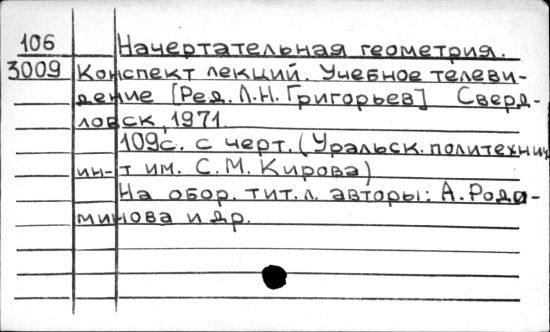 106 Начертательная геометрия.
3009 Конспект лекций. Учебное телеви-
дение [Ред. Л.Н. Григорьев] Сверд-
ловск, 1971.
109с. с черт. (Уральск. политехнич
ин-т им. С.М. Кирова)
На обор. тит. л. авторы: А. Роди-
минова и др.